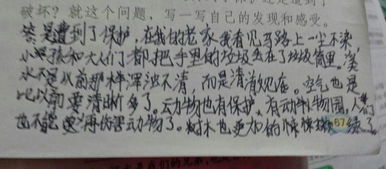 破坏？就这个问题，写一写自己的发现和感受。
答：是遭到了保护，在我的老家，我看见马路上一尘不染
小孩和大人们都把手里的垃圾丢在了垃圾筒里。
水不是以前那样浑浊不清，而是清澈见底。空气也是
比以前要清晰多了。动物也有保护，有动物园，人
也不能再伤害动物了。树木也更加的 绿了
67